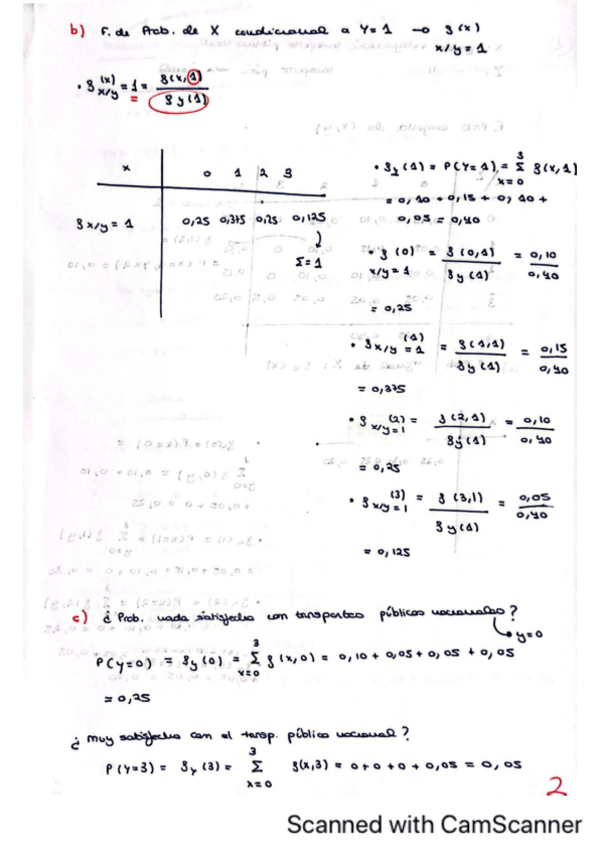 b) F. de Prob. de X condicional a Y=1 → g(x)
x/y=1
• g x/y=1 (x) = g(x,1) / gy(1)
x 0 1 2 3
g x/y=1 0,25 0,375 0,25 0,125
Σ=1
• gy(1) = P(Y=1) = Σ g(x,1)
3
x=0
= 0,10 + 0,15 + 0,10 +
0,05 = 0,40
• g x/y=1 (0) = g(0,1) / gy(1) = 0,10 / 0,40
= 0,25
• g x/y=1 (1) = g(1,1) / gy(1) = 0,15 / 0,40
= 0,375
• g x/y=1 (2) = g(2,1) / gy(1) = 0,10 / 0,40
= 0,25
• g x/y=1 (3) = g(3,1) / gy(1) = 0,05 / 0,40
= 0,125
c) ¿Prob. nada satisfecha con transportes públicos nacionales?
y=0
P(y=0) = gy(0) = Σ g(x,0) = 0,10 + 0,05 + 0,05 + 0,05
3
x=0
= 0,25
¿Muy satisfecha con el transp. público nacional?
P(Y=3) = gy(3) = Σ g(x,3) = 0+0+0+0,05 = 0,05
3
x=0
2
Scanned with CamScanner